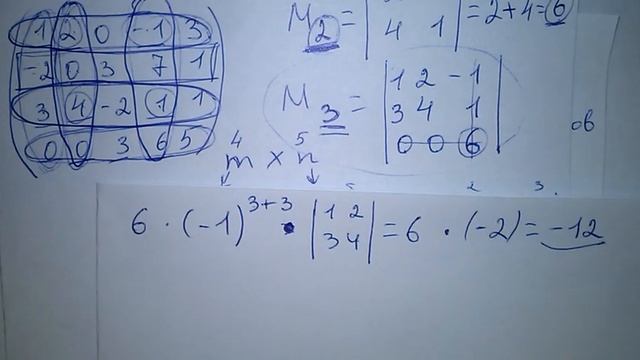 1 2 0 -1 3
-2 0 3 7 1
3 4 -2 1 1
0 0 3 6 5
M₂ = | 4 1 | = 2+4=6
M₃ = | 1 2 -1
3 4 1
0 0 6 |
ов
4 5
m × n
2 3
6 · (-1)³⁺³ · | 1 2
3 4 | = 6 · (-2) = -12